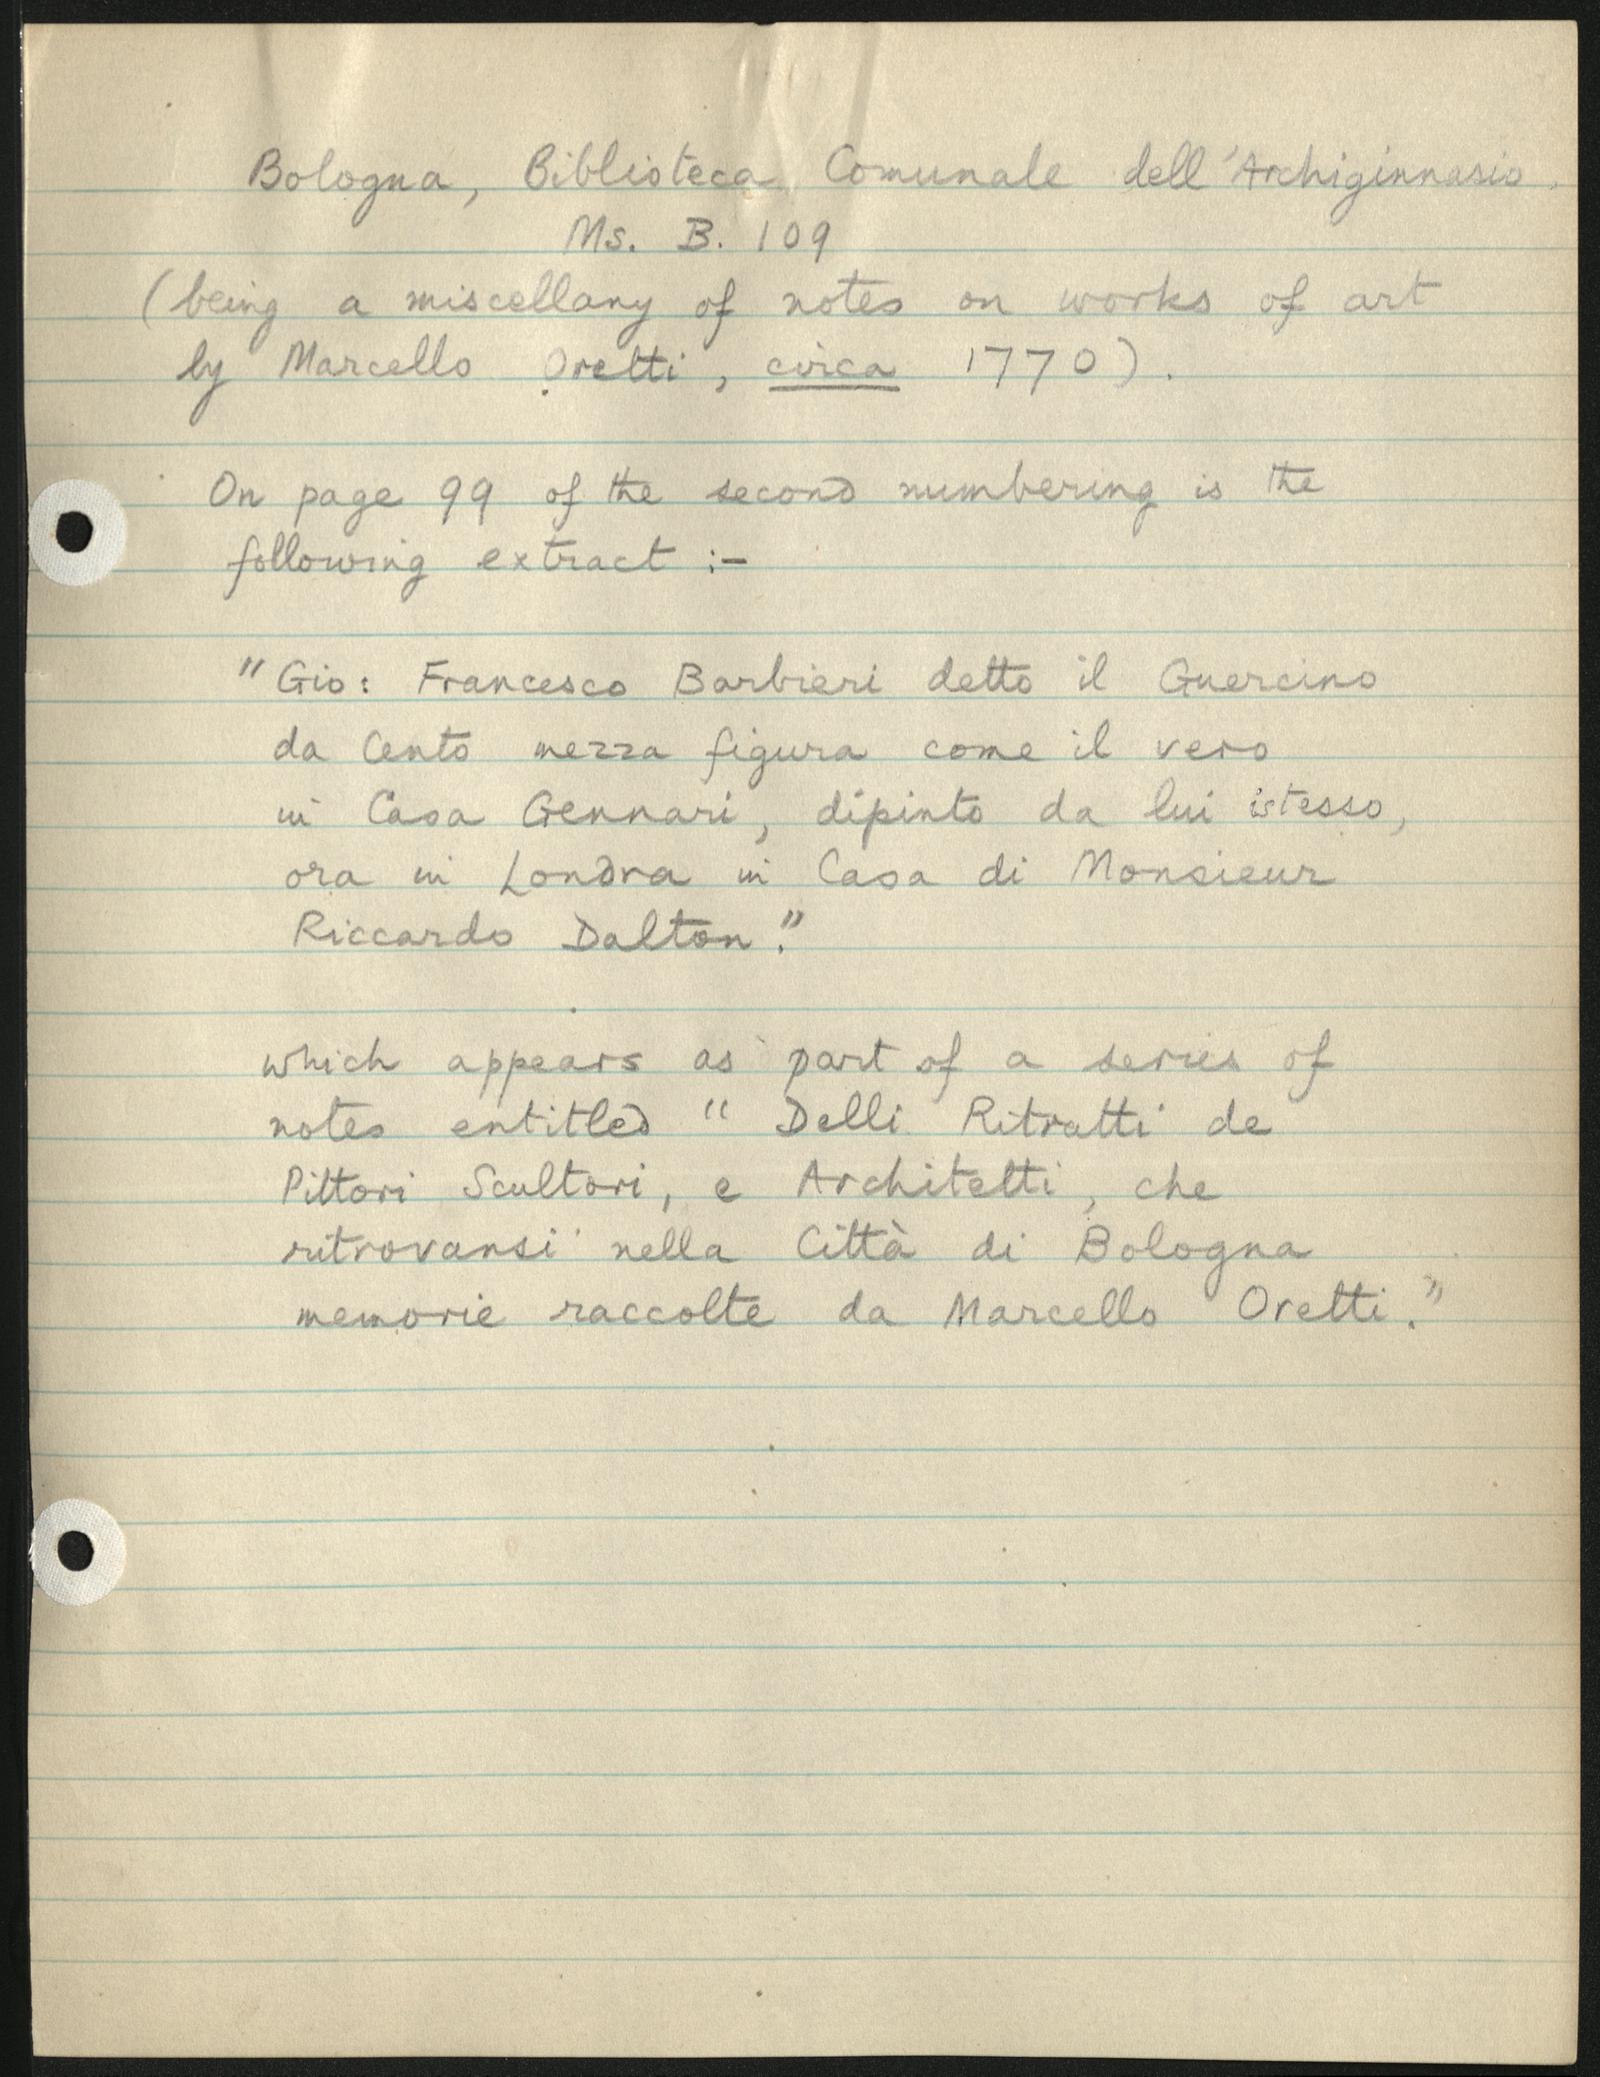 Bologna, Biblioteca Comunale dell'Archiginnasio.
Ms. B. 109
(being a miscellany of notes on works of art
by Marcello Oretti, circa 1770).
On page 99 of the second numbering is the
following extract :-
"Gio: Francesco Barbieri detto il Guercino
da Cento mezza figura come il vero
in Casa Gennari, dipinto da lui istesso,
ora in Londra in Casa di Monsieur
Riccardo Dalton."
which appears as part of a series of
notes entitled "Delli Ritratti de
Pittori Scultori, e Architetti, che
ritrovansi nella Città di Bologna
memorie raccolte da Marcello Oretti."